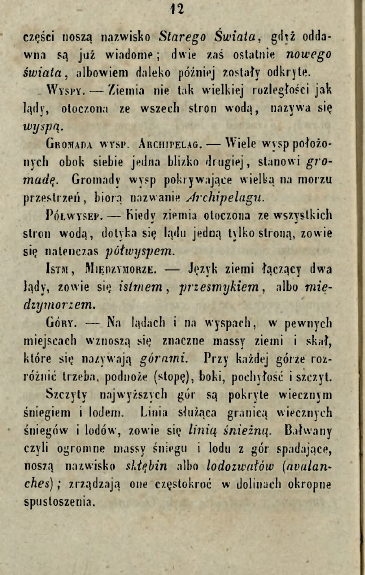 12
części noszą nazwisko Starego Świata, gdyż odda-
wna są już wiadome; dwie zaś ostatnie nowego
świata, albowiem daleko później zostały odkryte.
Wyspy. — Ziemia nie tak wielkiej rozległości jak
lądy, otoczona ze wszech stron wodą, nazywa się
wyspą.
Gromada wysp. Archipelag. — Wiele wysp położo-
nych obok siebie jedna blizko drugiej, stanowi gro-
madę. Gromady wysp pokrywające wielką na morzu
przestrzeń, biorą nazwanie Archipelagu.
Półwysep. — Kiedy ziemia otoczona ze wszystkich
stron wodą, dotyka się lądu jedną tylko stroną, zowie
się natenczas półwyspem.
Istm, Międzymorze. — Język ziemi łączący dwa
lądy, zowie się istmem, przesmykiem, albo mię-
dzymorzem.
Góry. — Na lądach i na wyspach, w pewnych
miejscach wznoszą się znaczne massy ziemi i skał,
które się nazywają górami. Przy każdej górze roz-
różnić trzeba, podnoże (stopę), boki, pochyłość i szczyt.
Szczyty najwyższych gór są pokryte wiecznym
śniegiem i lodem. Linia służąca granicą wiecznych
śniegów i lodów, zowie się linią śnieżną. Bałwany
czyli ogromne massy śniegu i lodu z gór spadające,
noszą nazwisko skłębin albo lodozwałów (avalan-
ches); zrządzają one częstokroć w dolinach okropne
spustoszenia.